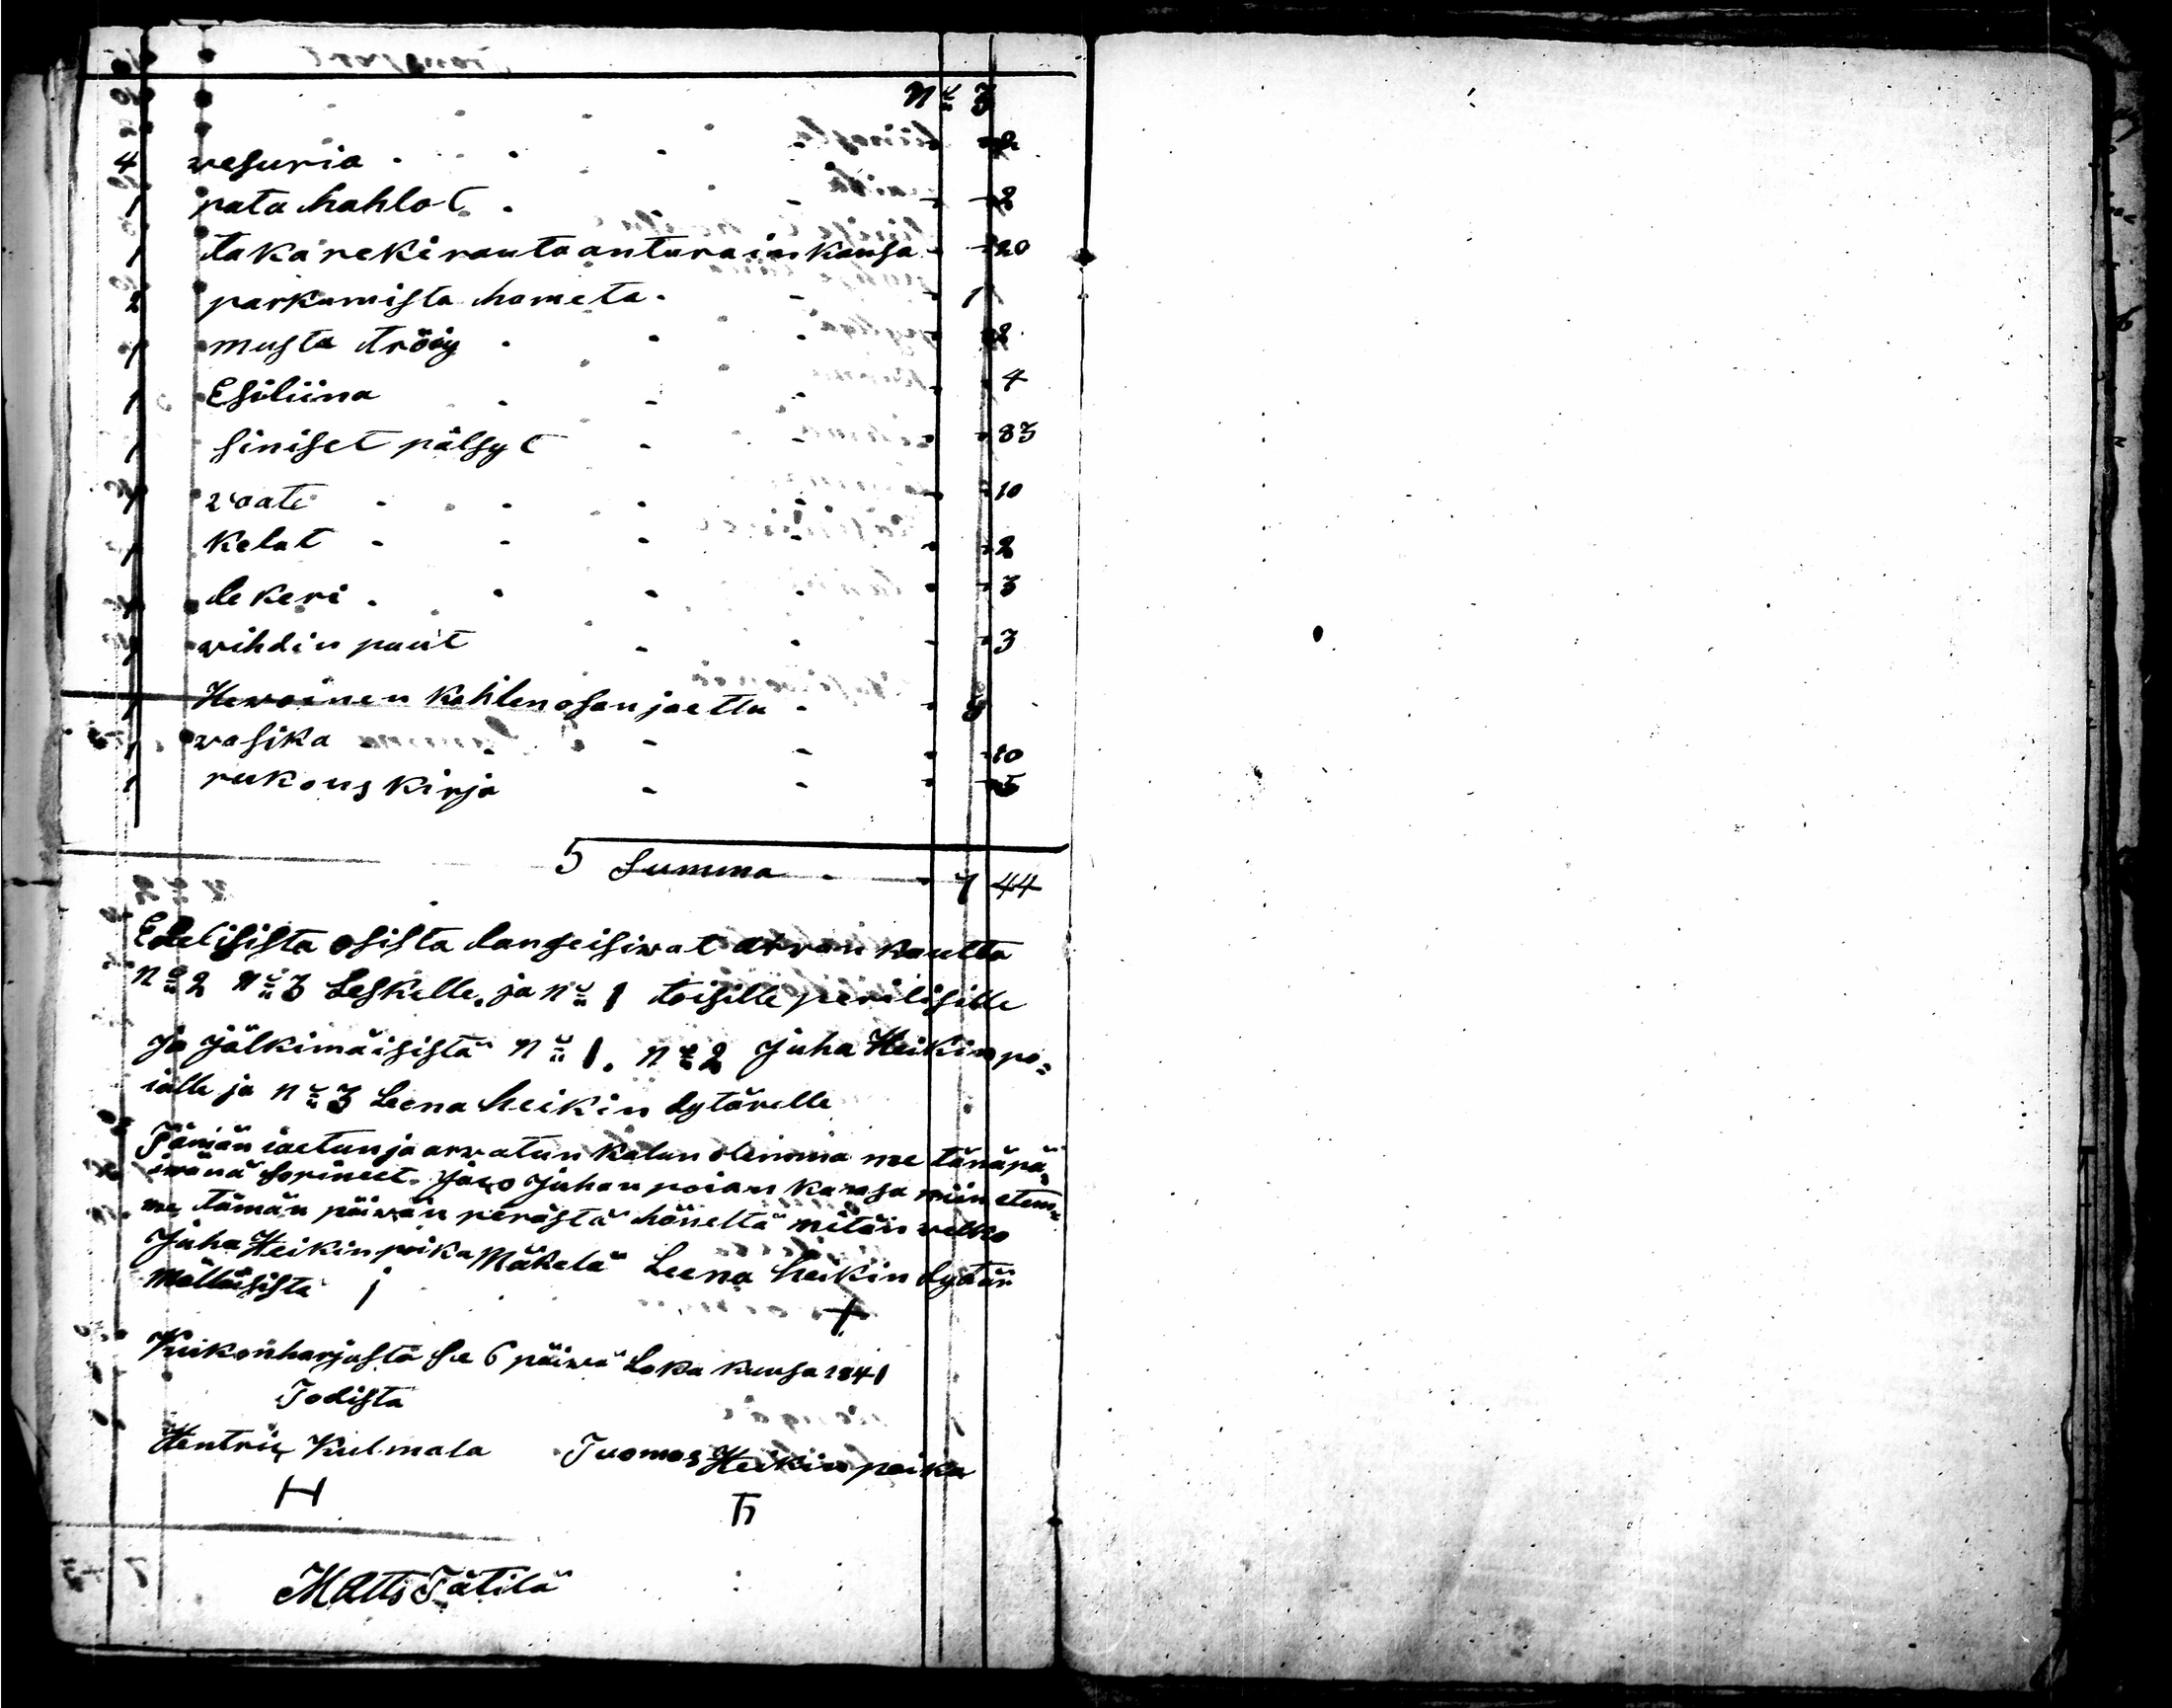 N:o 3
4 vesuria . . . . 2
1 pata hahlot . - 2
1 taka reki rauta anturain kansa - 20
2 parkumista hameta . - 1
1 musta tröiy . . - 2
1 Esiliina . - - 4
1 siniset pälsyt - - 83
1 raate . . . 10
1 kelat - . - - 2
1 tekeri . . . . 3
1 vihdin puut - . - 3
1 Hevoinen kahlen osan jaettu - 3
1 vasika - - - 10
1 rukous kirja - - 5
S Summa - 7 44
Edelisista osista langeisivat arvan kautta
N:o 2 N:o 3 Leskelle, ja N:o 1 toisille perilisille
ja jälkimäisistä N:o 1. N:o 2 Juha Heikin po=
ialle ja N:o 3 Leena heikin tytärelle
Tämän iaetun ja arvatun kalun olemma me tänäpä=
ivänä sopineet. Jaco Juhan poian kansa niin etem=
me tämän päivän perästä häneltä mitän velko
Juha Heikin poika Mäkelä Leena heikin tytär
Mälläisistä
+
Kuikonharjusta se 6 päivä Loka kuusa 1841
Todista
Hentric Kulmala Tuomas Heikin poika
H Th
Matts Tätilä